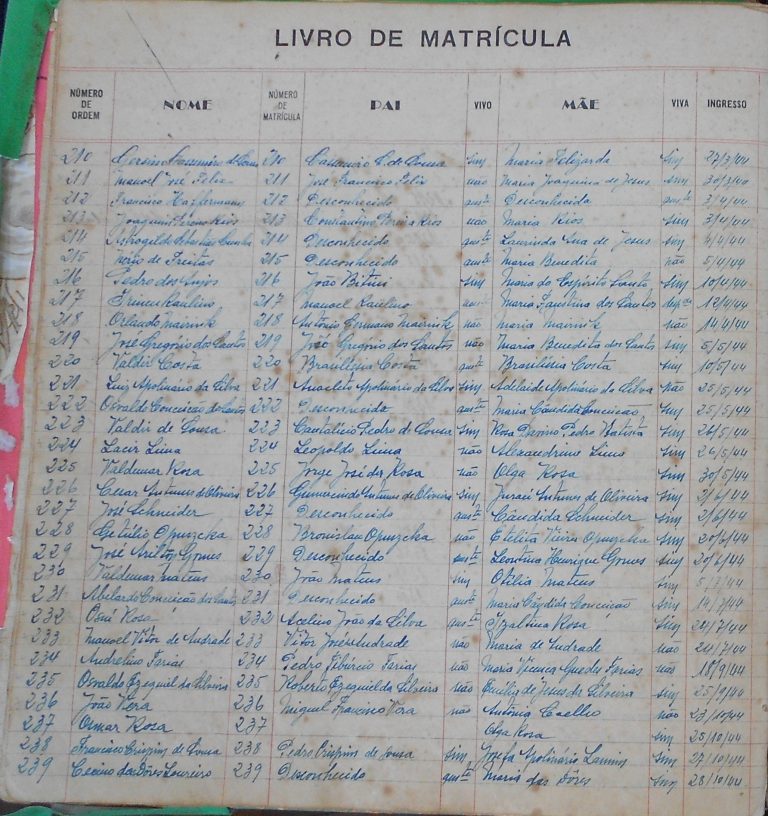 LIVRO DE MATRÍCULA
NÚMERO DE ORDEM NOME NÚMERO DE MATRÍCULA PAI VIVO MÃE VIVA INGRESSO
210 210 sim Maria Felizarda sim 27/3/44
211 Manoel José Felix 211 José Francisco Felix não Maria Joaquina de Jesus sim 30/3/44
212 Francisco 212 Desconhecido auste Desconhecido auste 3/4/44
213 Joaquim Kios 213 Constantino Pereira Kios não Maria Kios sim 3/4/44
214 Cunha 214 Desconhecido auste Laurinda Ana de Jesus sim 4/4/44
215 Nerêo de Freitas 215 Desconhecido auste Maria Benedita não 5/4/44
216 Pedro dos Anjos 216 João Bitui sim Maria do Espírito Santo sim 10/4/44
217 Paulino 217 Manoel Paulino Maria Faustino dos Santos 12/4/44
218 Orlando Mairnik 218 Antonio Germano Mairnik não Maria Mairnik não 14/4/44
219 José Gregório dos Santos 219 José Gregório dos Santos não Maria Benedita dos Santos sim 5/5/44
220 Valdir Costa 220 Brasilisia Costa auste Brasilisia Costa sim 10/5/44
221 Luiz Apolinário da Silva 221 Anacleto Apolinário da Silva sim Adelaide Apolinário da Silva não 25/5/44
222 Osvaldo Conceição dos Santos 222 Desconhecido auste Maria Cândida Conceição sim 25/5/44
223 Valdir de Sousa 223 Cantalicio Pedro de Sousa sim Rosa Pedro Batista sim 26/5/44
224 Lacir Lima 224 Leopoldo Lima não Alexandrina Lima sim 26/5/44
225 Valdemar Rosa 225 Jorge José da Rosa não Olga Rosa sim 30/5/44
226 Cesar Antunes de Oliveira 226 Gumercindo Antunes de Oliveira sim Juraci Antunes de Oliveira sim 2/6/44
227 José Schneider 227 Desconhecido auste Cândida Schneider sim 2/6/44
228 Getúlio Opuszcka 228 Bronislau Opuszcka não Etelita Vieira Opuszcka sim 20/6/44
229 José Ariltom Gomes 229 Desconhecido auste Leontina Henrique Gomes sim 20/6/44
230 Valdemar Mateus 230 João Mateus sim Otília Mateus sim 5/7/44
231 Abelardo Conceição dos Santos 231 Desconhecido auste Maria Cândida Conceição sim 14/7/44
232 Osni Rosa 232 Acelino João da Silva auste Izaltina Rosa sim 24/7/44
233 Manoel Vitor de Andrade 233 Vitor José Andrade não Maria de Andrade não 24/7/44
234 Andrelino Farias 234 Pedro Tibúrcio Farias não Maria Vicença Guedes Farias não 18/9/44
235 Osvaldo Ezequiel da Silveira 235 Roberto Ezequiel da Silveira não Emilia de Jesus da Silveira sim 25/9/44
236 João Vera 236 Miguel Francisco Vera não Antônia Coelho não 23/10/44
237 Osmar Rosa 237 Olga Rosa sim 25/10/44
238 Francisco Crispim de Sousa 238 Pedro Crispim de Sousa sim Josefa Apolinário Lamim sim 27/10/44
239 Cecino das Dôres Loureiro 239 Desconhecido auste Maria das Dôres sim 28/10/44